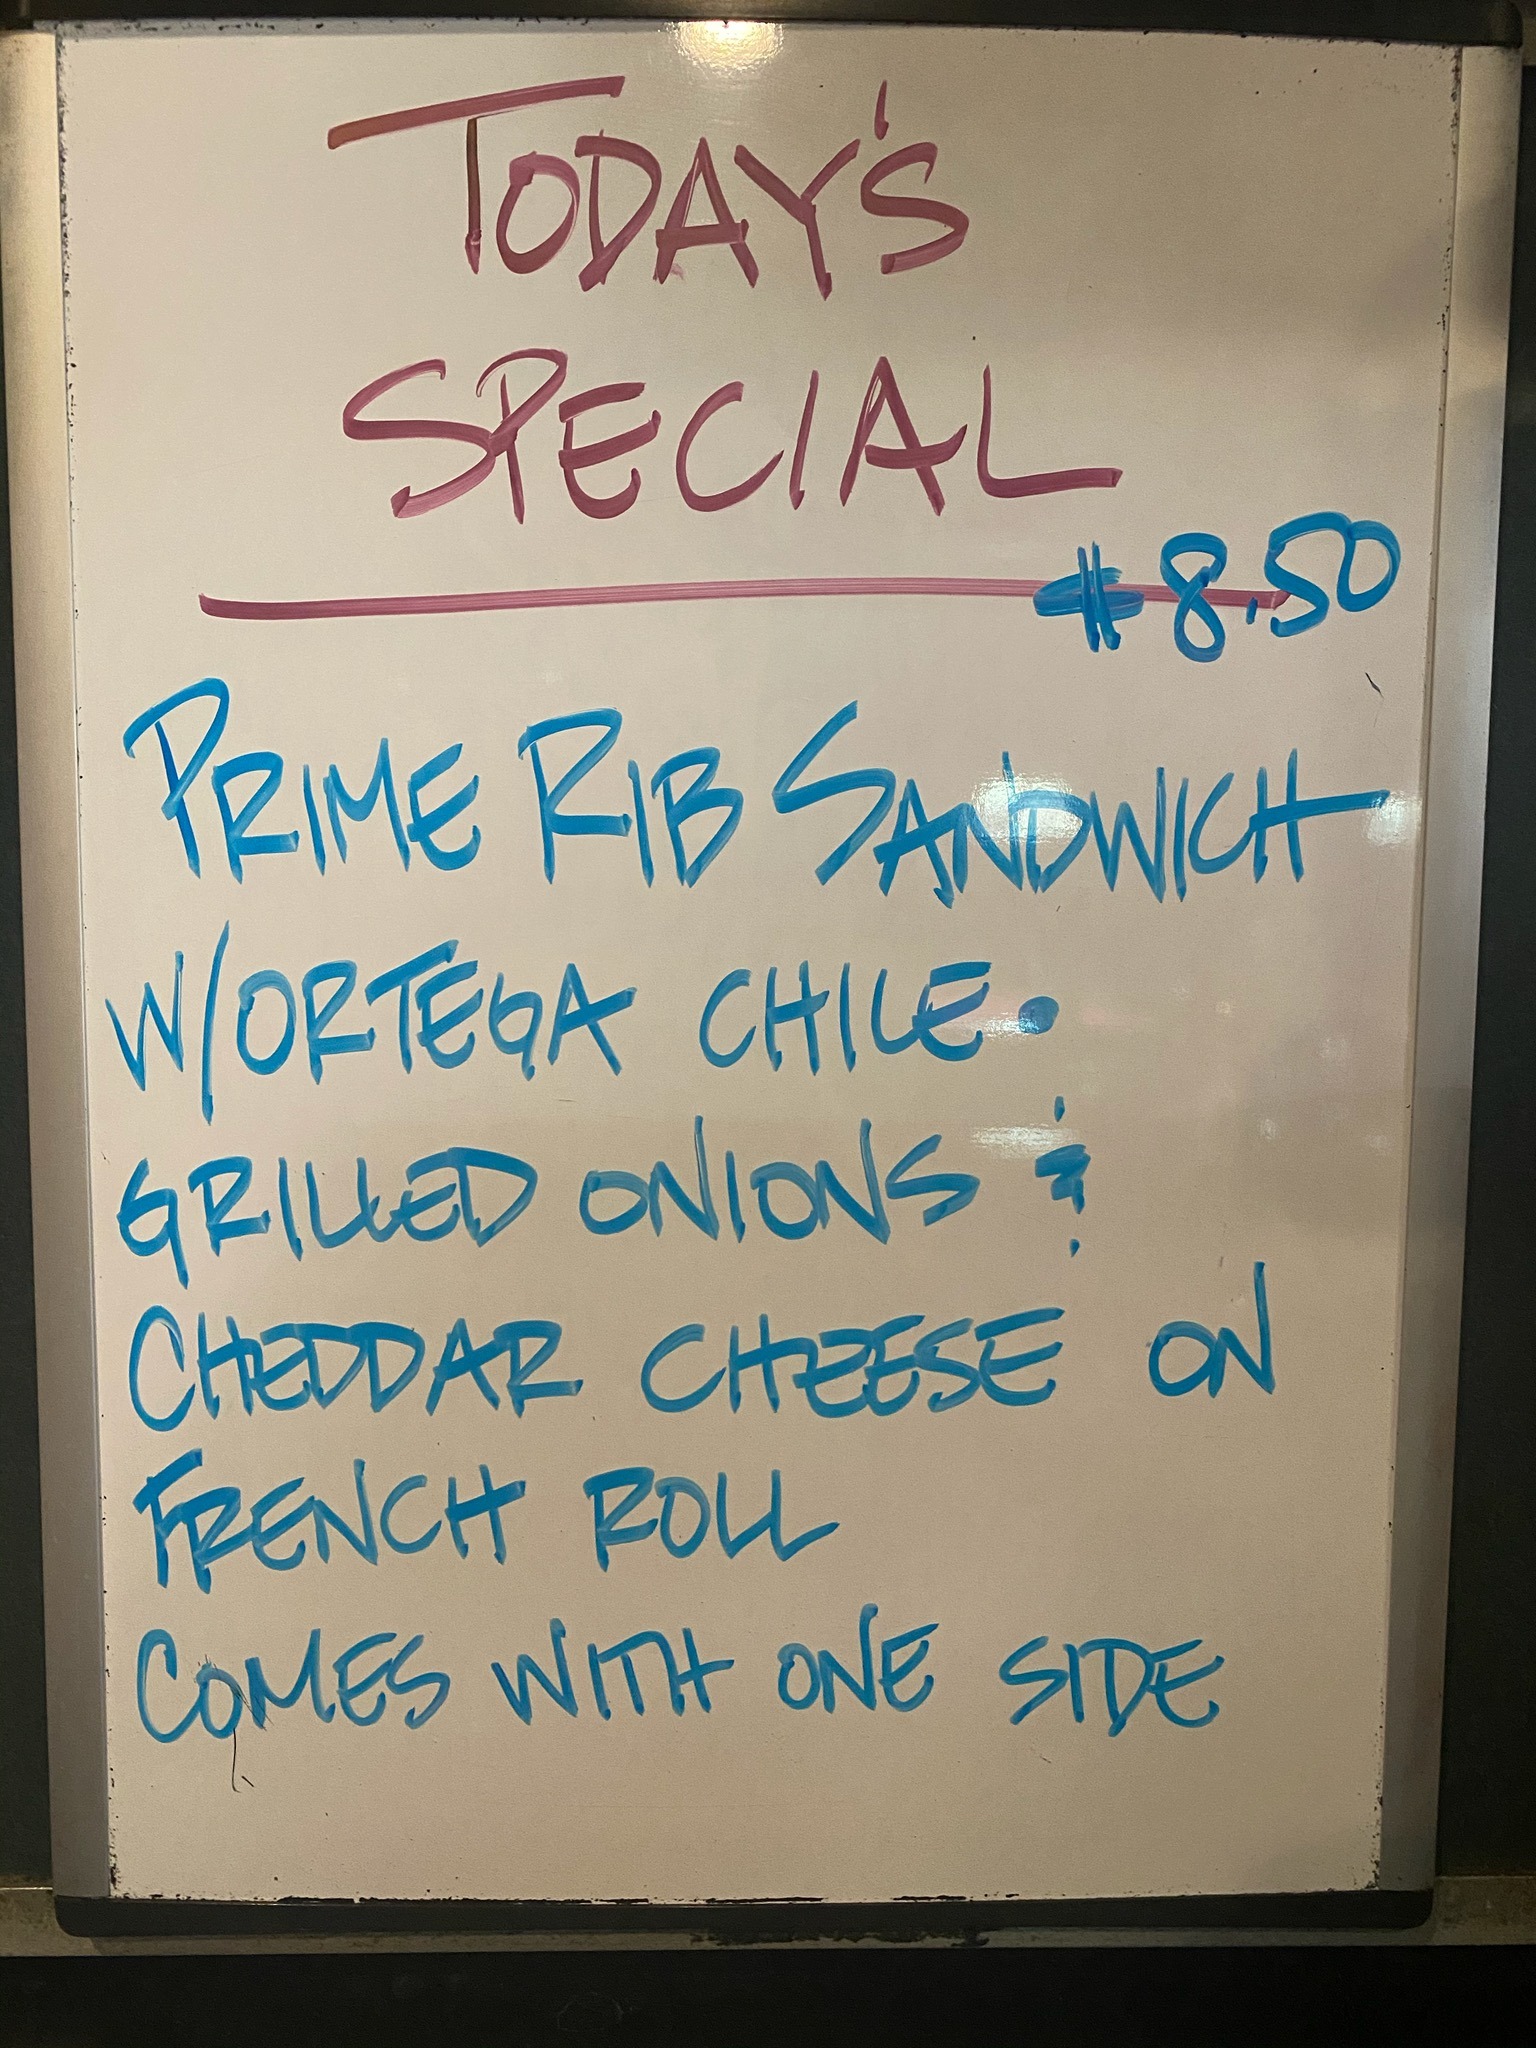 TODAY'S
SPECIAL
$8.50
PRIME RIB SANDWICH
W/ORTEGA CHILE •
GRILLED ONIONS &
CHEDDAR CHEESE ON
FRENCH ROLL
COMES WITH ONE SIDE